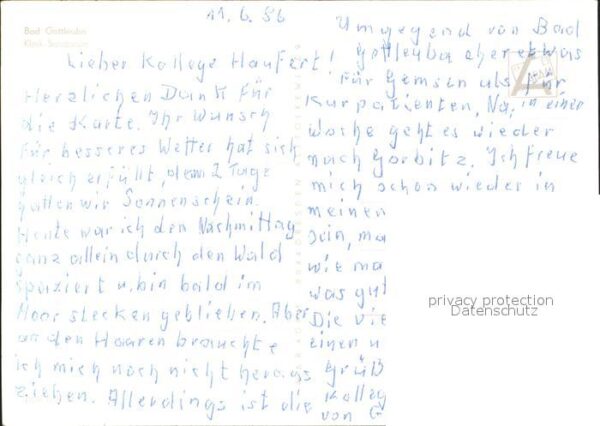 11.6.86
Bad Gottleuba
Klinik-Sanatorium
Lieber Kollege Haufert!
Herzlichen Dank für
die Karte. Ihr Wunsch
für besseres Wetter hat sich
gleich erfüllt, denn 2 Tage
hatten wir Sonnenschein.
Heute war ich den Nachmittag
ganz allein durch den Wald
spaziert u. bin bald im
Moor stecken geblieben. Aber
an den Haaren brauchte
ich mich noch nicht heraus
ziehen. Allerdings ist die
Umgegend von Bad
Gottleuba eher etwas
für Gemsen als für
Kurpatienten. Na, in einer
Woche geht es wieder
nach Gorbitz. Ich freue
mich schon wieder in
meinen
sein, ma
wie ma
was gut
Die vie
einen u
Grüß
Kolleg
von G
privacy protection
Datenschutz